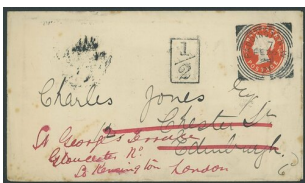 1/2
Charles Jones Esq
Chester St
Edinburgh
St George's Terrace
Gloucester Rd
S. Kensington London